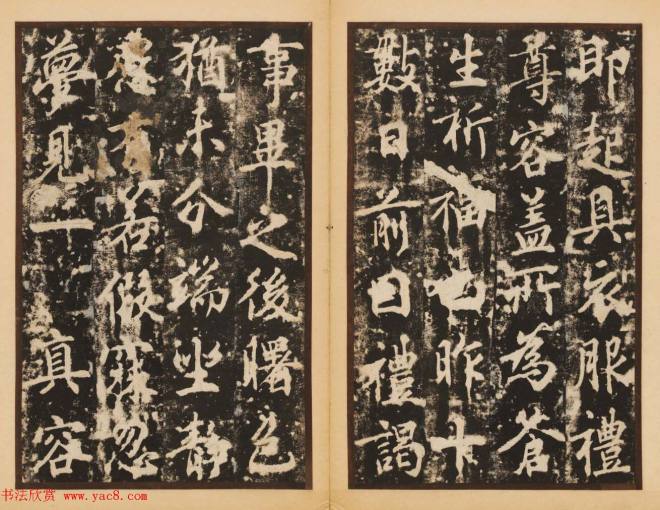 即起具衣服禮
尊容盖所為蒼
生祈福也昨十
數日前因禮謁
事畢之後曙色
猶未分端坐静
慮有若假寐忽
夢見一真容
书法欣赏 www.yac8.com